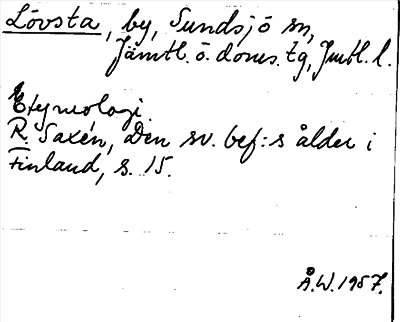 Lövsta, by, Sundsjö sn,
Jämtl. ö. doms. tg, Jmtl. l.
Etymologi.
R. Saxén, Den sv. bef:s ålder i
Finland, s. 15.
Å.W. 1957.